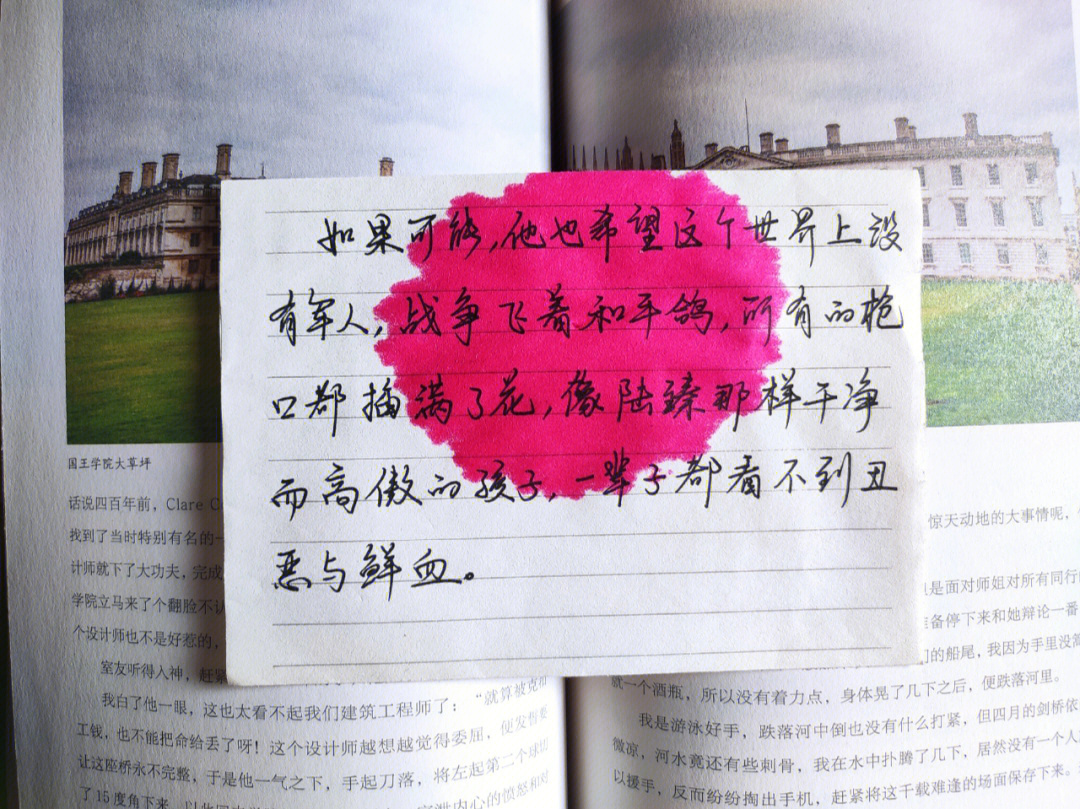 如果可能,他也希望这个世界上没
有军人,战争飞着和平鸽,所有的枪
口都插满了花,像陆臻那样干净
而高傲的孩子,一辈子都看不到丑
恶与鲜血。
国王学院大草坪
话说四百年前，Clare C
找到了当时特别有名的一
计师就下了大功夫，完成
学院立马来了个翻脸不认
个设计师也不是好惹的，
室友听得入神，赶紧
我白了他一眼，这也太看不起我们建筑工程师了：“就算被克
工钱，也不能把命给丢了呀！这个设计师越想越觉得委屈，便发誓要
让这座桥永不完整，于是他一气之下，手起刀落，将左起第二个球切
了15度角下来，以此
泄内心的愤怒和对
惊天动地的大事情呢，
但是面对师姐对所有同行的
准备停下来和她辩论一番
们的船尾，我因为手里没篙
就一个酒瓶，所以没有着力点，身体晃了几下之后，便跌落河里。
我是游泳好手，跌落河中倒也没有什么打紧，但四月的剑桥依
微凉，河水竟还有些刺骨，我在水中扑腾了几下，居然没有一个人
以援手，反而纷纷掏出手机，赶紧将这千载难逢的场面保存下来。